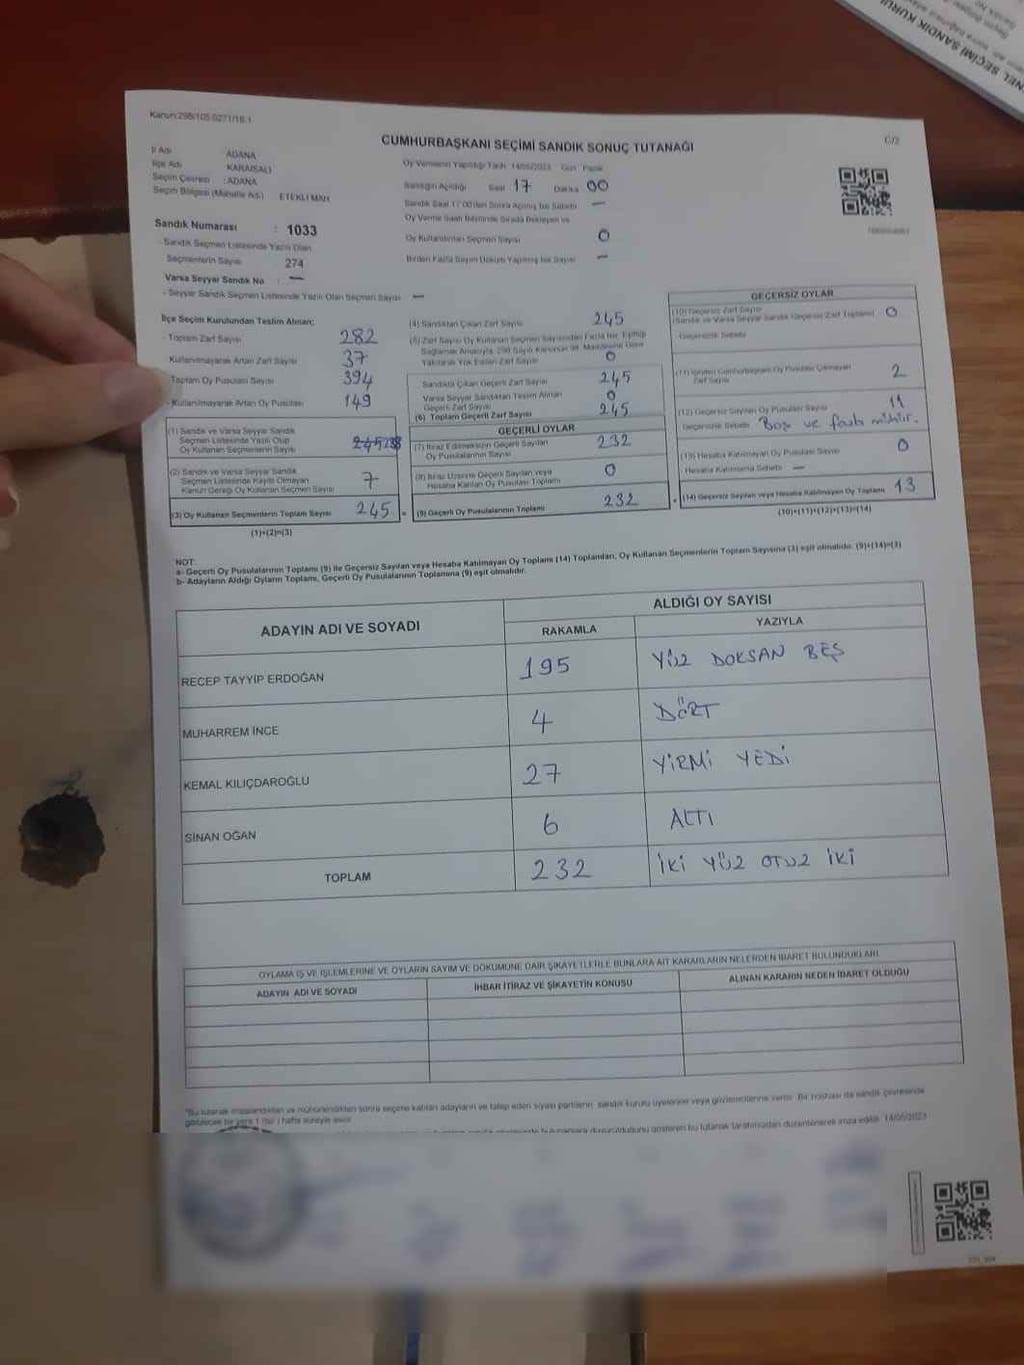 NEL SEÇİMİ SANDIK KURU
Kanun:298/105 0271/18:1
CUMHURBAŞKANI SEÇİMİ SANDIK SONUÇ TUTANAĞI
C/2
İl Adı ADANA
İlçe Adı KARAİSALI
Seçim Çevresi : ADANA
Seçim Bölgesi (Mahalle Adı) ETEKLİ MAH.
Oy Vermenin Yapıldığı Tarih 14/05/2023 Gün Pazar
Sandığın Açıldığı Saat 17 Dakika 00
Sandık Saat 17:00'den Sonra Açılmış İse Sebebi —
Oy Verme Saati Bitiminde Sırada Bekleyen ve
Oy Kullandırılan Seçmen Sayısı 0
Birden Fazla Sayım Döküm Yapılmış İse Sayısı —
Sandık Numarası : 1033
- Sandık Seçmen Listesinde Yazılı Olan
Seçmenlerin Sayısı 274
Varsa Seyyar Sandık No : —
- Seyyar Sandık Seçmen Listesinde Yazılı Olan Seçmen Sayısı —
İlçe Seçim Kurulundan Teslim Alınan;
- Toplam Zarf Sayısı 282
- Kullanılmayarak Artan Zarf Sayısı 37
- Toplam Oy Pusulası Sayısı 394
- Kullanılmayarak Artan Oy Pusulası 149
(1) Sandık ve Varsa Seyyar Sandık
Seçmen Listesinde Yazılı Olup
Oy Kullanan Seçmenlerin Sayısı 245 238
(2) Sandık ve Varsa Seyyar Sandık
Seçmen Listesinde Kayıtlı Olmayan
Kanun Gereği Oy Kullanan Seçmen Sayısı 7
(3) Oy Kullanan Seçmenlerin Toplam Sayısı 245
(1)+(2)=(3)
(4) Sandıktan Çıkan Zarf Sayısı 245
(5) Zarf Sayısı Oy Kullanan Seçmen Sayısından Fazla İse, Eşitliği
Sağlamak Amacıyla, 298 Sayılı Kanunun 98. Maddesine Göre
Yakılarak Yok Edilen Zarf Sayısı 0
Sandıkta Çıkan Geçerli Zarf Sayısı 245
Varsa Seyyar Sandıktan Teslim Alınan
Geçerli Zarf Sayısı 0
(6) Toplam Geçerli Zarf Sayısı 245
GEÇERLİ OYLAR
(7) İtiraz Edilmeksizin Geçerli Sayılan
Oy Pusulalarının Sayısı 232
(8) İtiraz Üzerine Geçerli Sayılan veya
Hesaba Katılan Oy Pusulası Toplamı 0
(9) Geçerli Oy Pusulalarının Toplamı 232
GEÇERSİZ OYLAR
(10) Geçersiz Zarf Sayısı
(Sandık ve Varsa Seyyar Sandık Geçersiz Zarf Toplamı) 0
Geçersizlik Sebebi
(11) İçinden Cumhurbaşkanı Oy Pusulası Çıkmayan
Zarf Sayısı 2
(12) Geçersiz Sayılan Oy Pusulası Sayısı 11
Geçersizlik Sebebi Boş ve fazla mühür.
(13) Hesaba Katılmayan Oy Pusulası Sayısı 0
Hesaba Katılmama Sebebi —
(14) Geçersiz Sayılan veya Hesaba Katılmayan Oy Toplamı 13
(10)+(11)+(12)+(13)=(14)
NOT:
a- Geçerli Oy Pusulalarının Toplamı (9) ile Geçersiz Sayılan veya Hesaba Katılmayan Oy Toplamı (14) Toplamları, Oy Kullanan Seçmenlerin Toplam Sayısına (3) eşit olmalıdır. (9)+(14)=(3)
b- Adayların Aldığı Oyların Toplamı, Geçerli Oy Pusulalarının Toplamına (9) eşit olmalıdır.
ADAYIN ADI VE SOYADI
ALDIĞI OY SAYISI
RAKAMLA YAZIYLA
RECEP TAYYİP ERDOĞAN 195 YÜZ DOKSAN BEŞ
MUHARREM İNCE 4 DÖRT
KEMAL KILIÇDAROĞLU 27 YİRMİ YEDİ
SİNAN OĞAN 6 ALTI
TOPLAM 232 İKİ YÜZ OTUZ İKİ
OYLAMA İŞ VE İŞLEMLERİNE VE OYLARIN SAYIM VE DÖKÜMÜNE DAİR ŞİKAYETLERLE BUNLARA AİT KARARLARIN NELERDEN İBARET BULUNDUKLARI
ADAYIN ADI VE SOYADI
İHBAR İTİRAZ VE ŞİKAYETİN KONUSU
ALINAN KARARIN NEDEN İBARET OLDUĞU